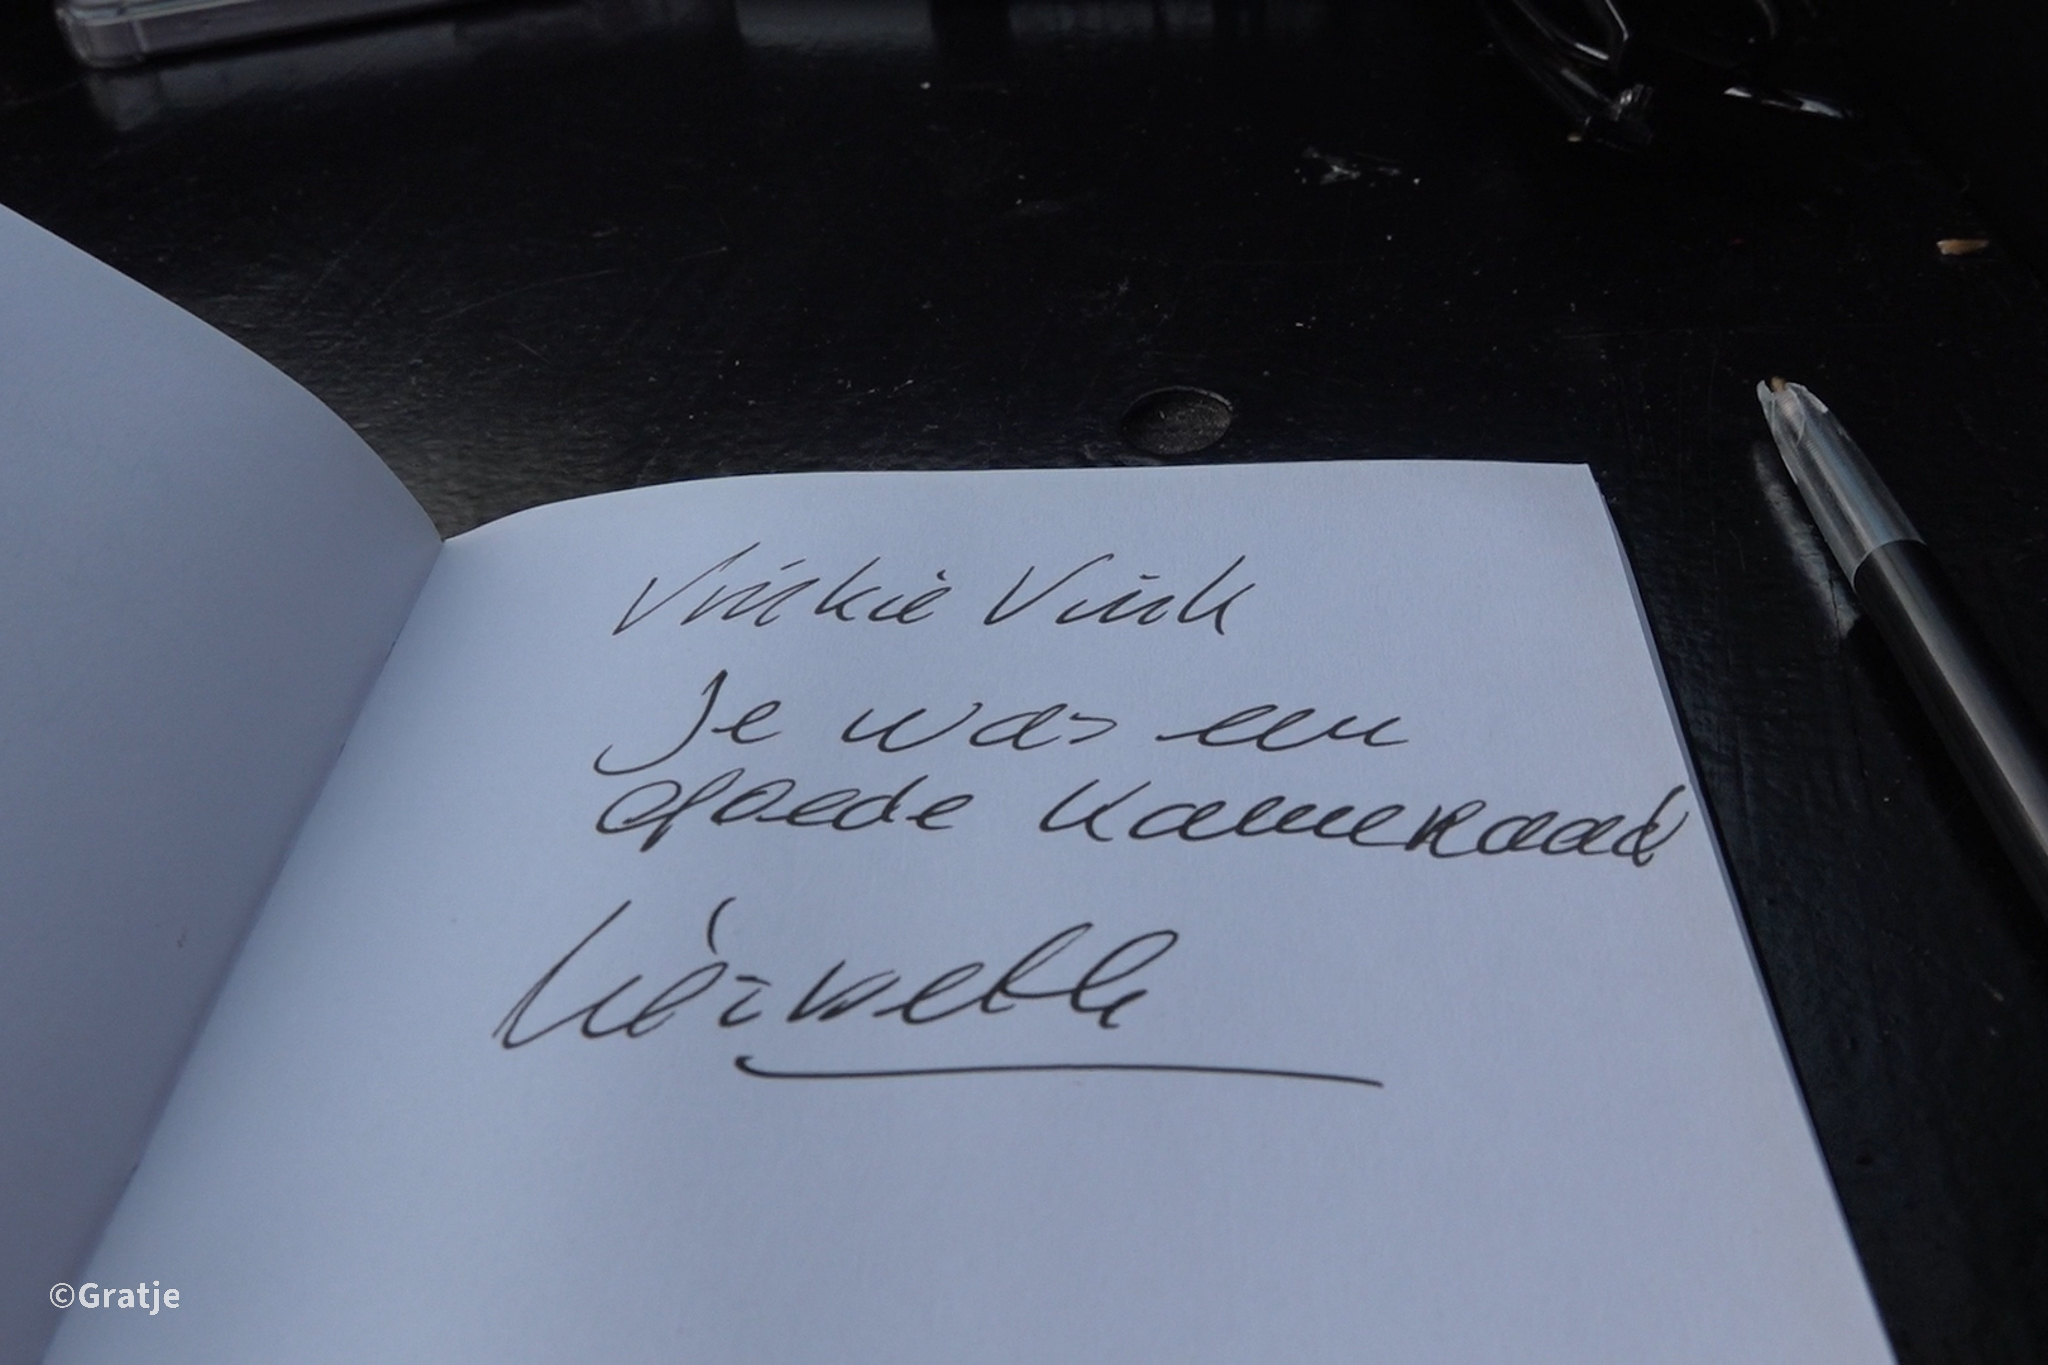 Vinkie Vink
Je was een
goede kameraad
©Gratje